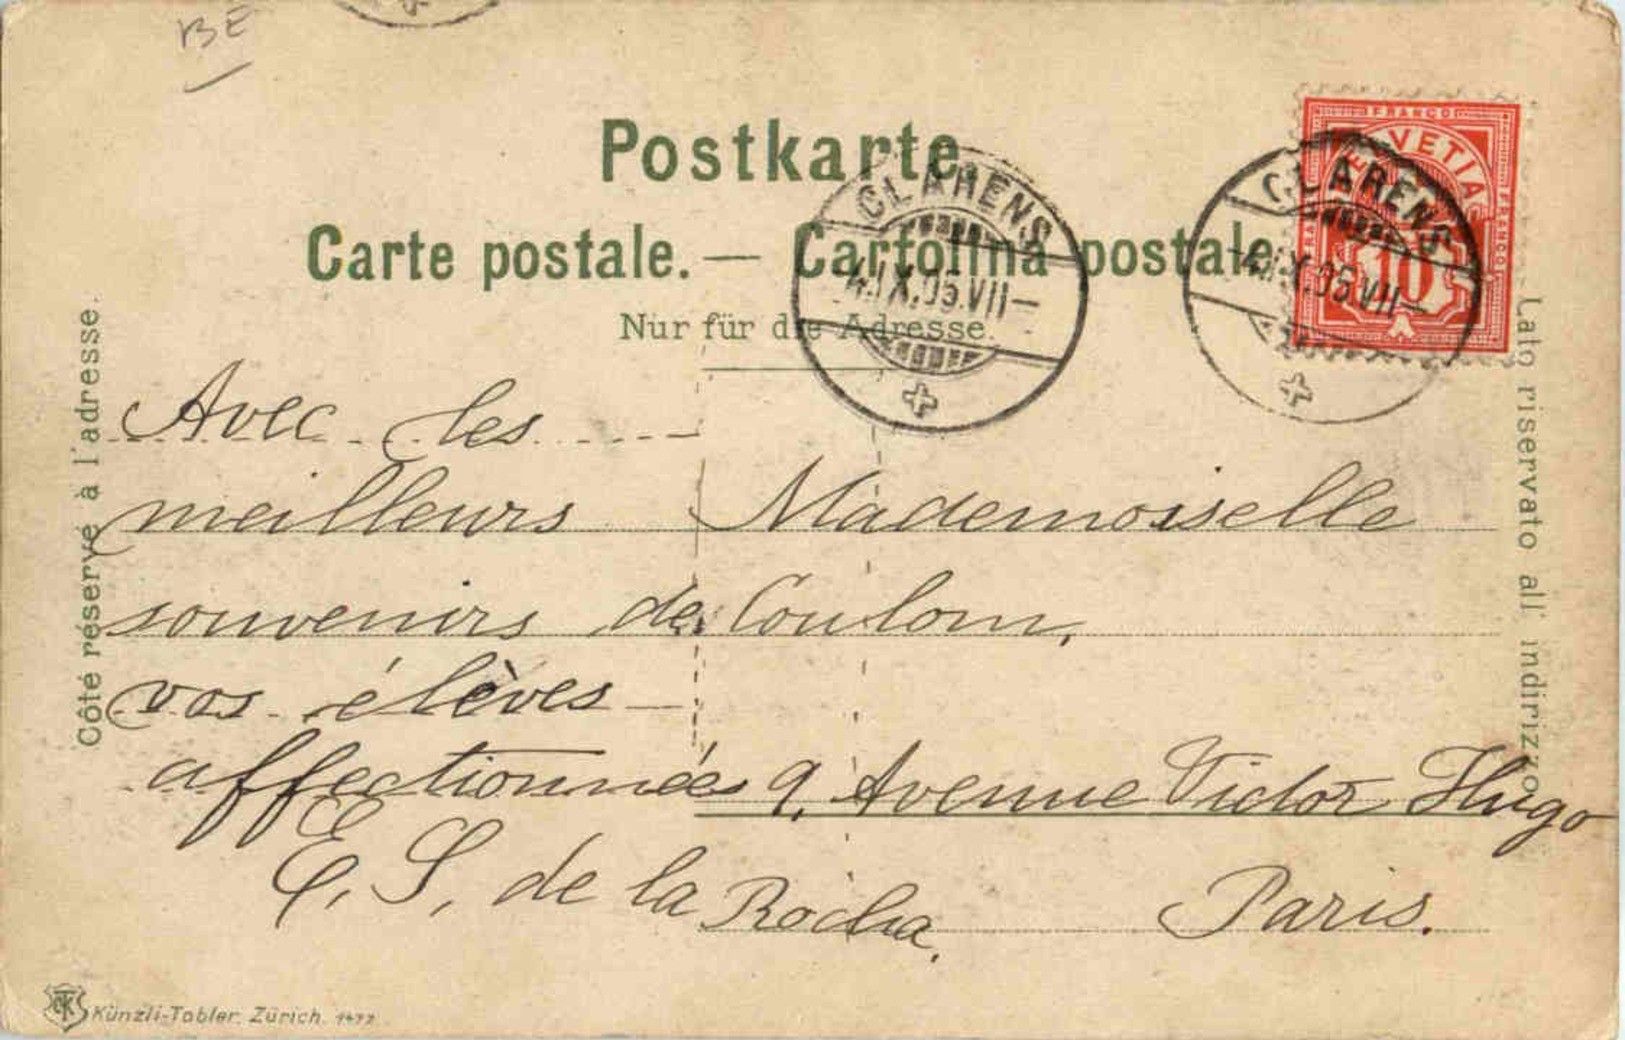 BE
Postkarte.
Carte postale. — Cartolina postale.
Nur für die Adresse.
FRANCO
HELVETIA
FRANCO
10
CLARENS
-4.IX.05.VII-
CLARENS
-4.IX.05.VII-
Côté réservé à l'adresse.
Lato riservato all' indirizzo.
Avec les
meilleurs
souvenirs de
vos élèves
affectionnées
E. S. de la Rocha.
Mademoiselle
Coulom,
9, Avenue Victor Hugo
Paris.
Künzli-Tobler, Zürich. 1477